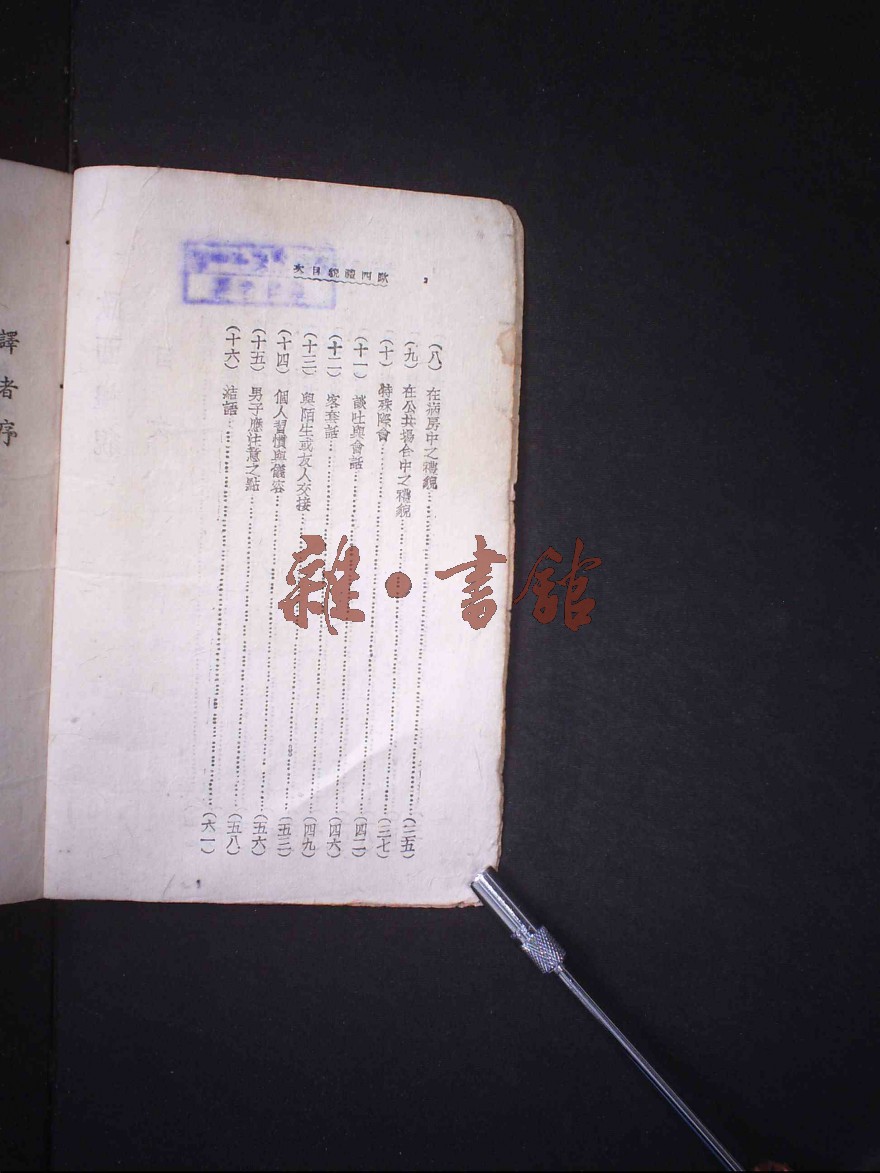 歐西禮貌目次
2
(八) 在病房中之禮貌……(三五)
(九) 在公共場合中之禮貌……(三七)
(十) 特殊際會……(四二)
(十一) 談吐與會話……(四六)
(十二) 客套話……(四九)
(十三) 與陌生或友人交接……(五三)
(十四) 個人習慣與儀容……(五六)
(十五) 男子應注意之點……(五八)
(十六) 結語……(六一)
譯者序
雜·書館